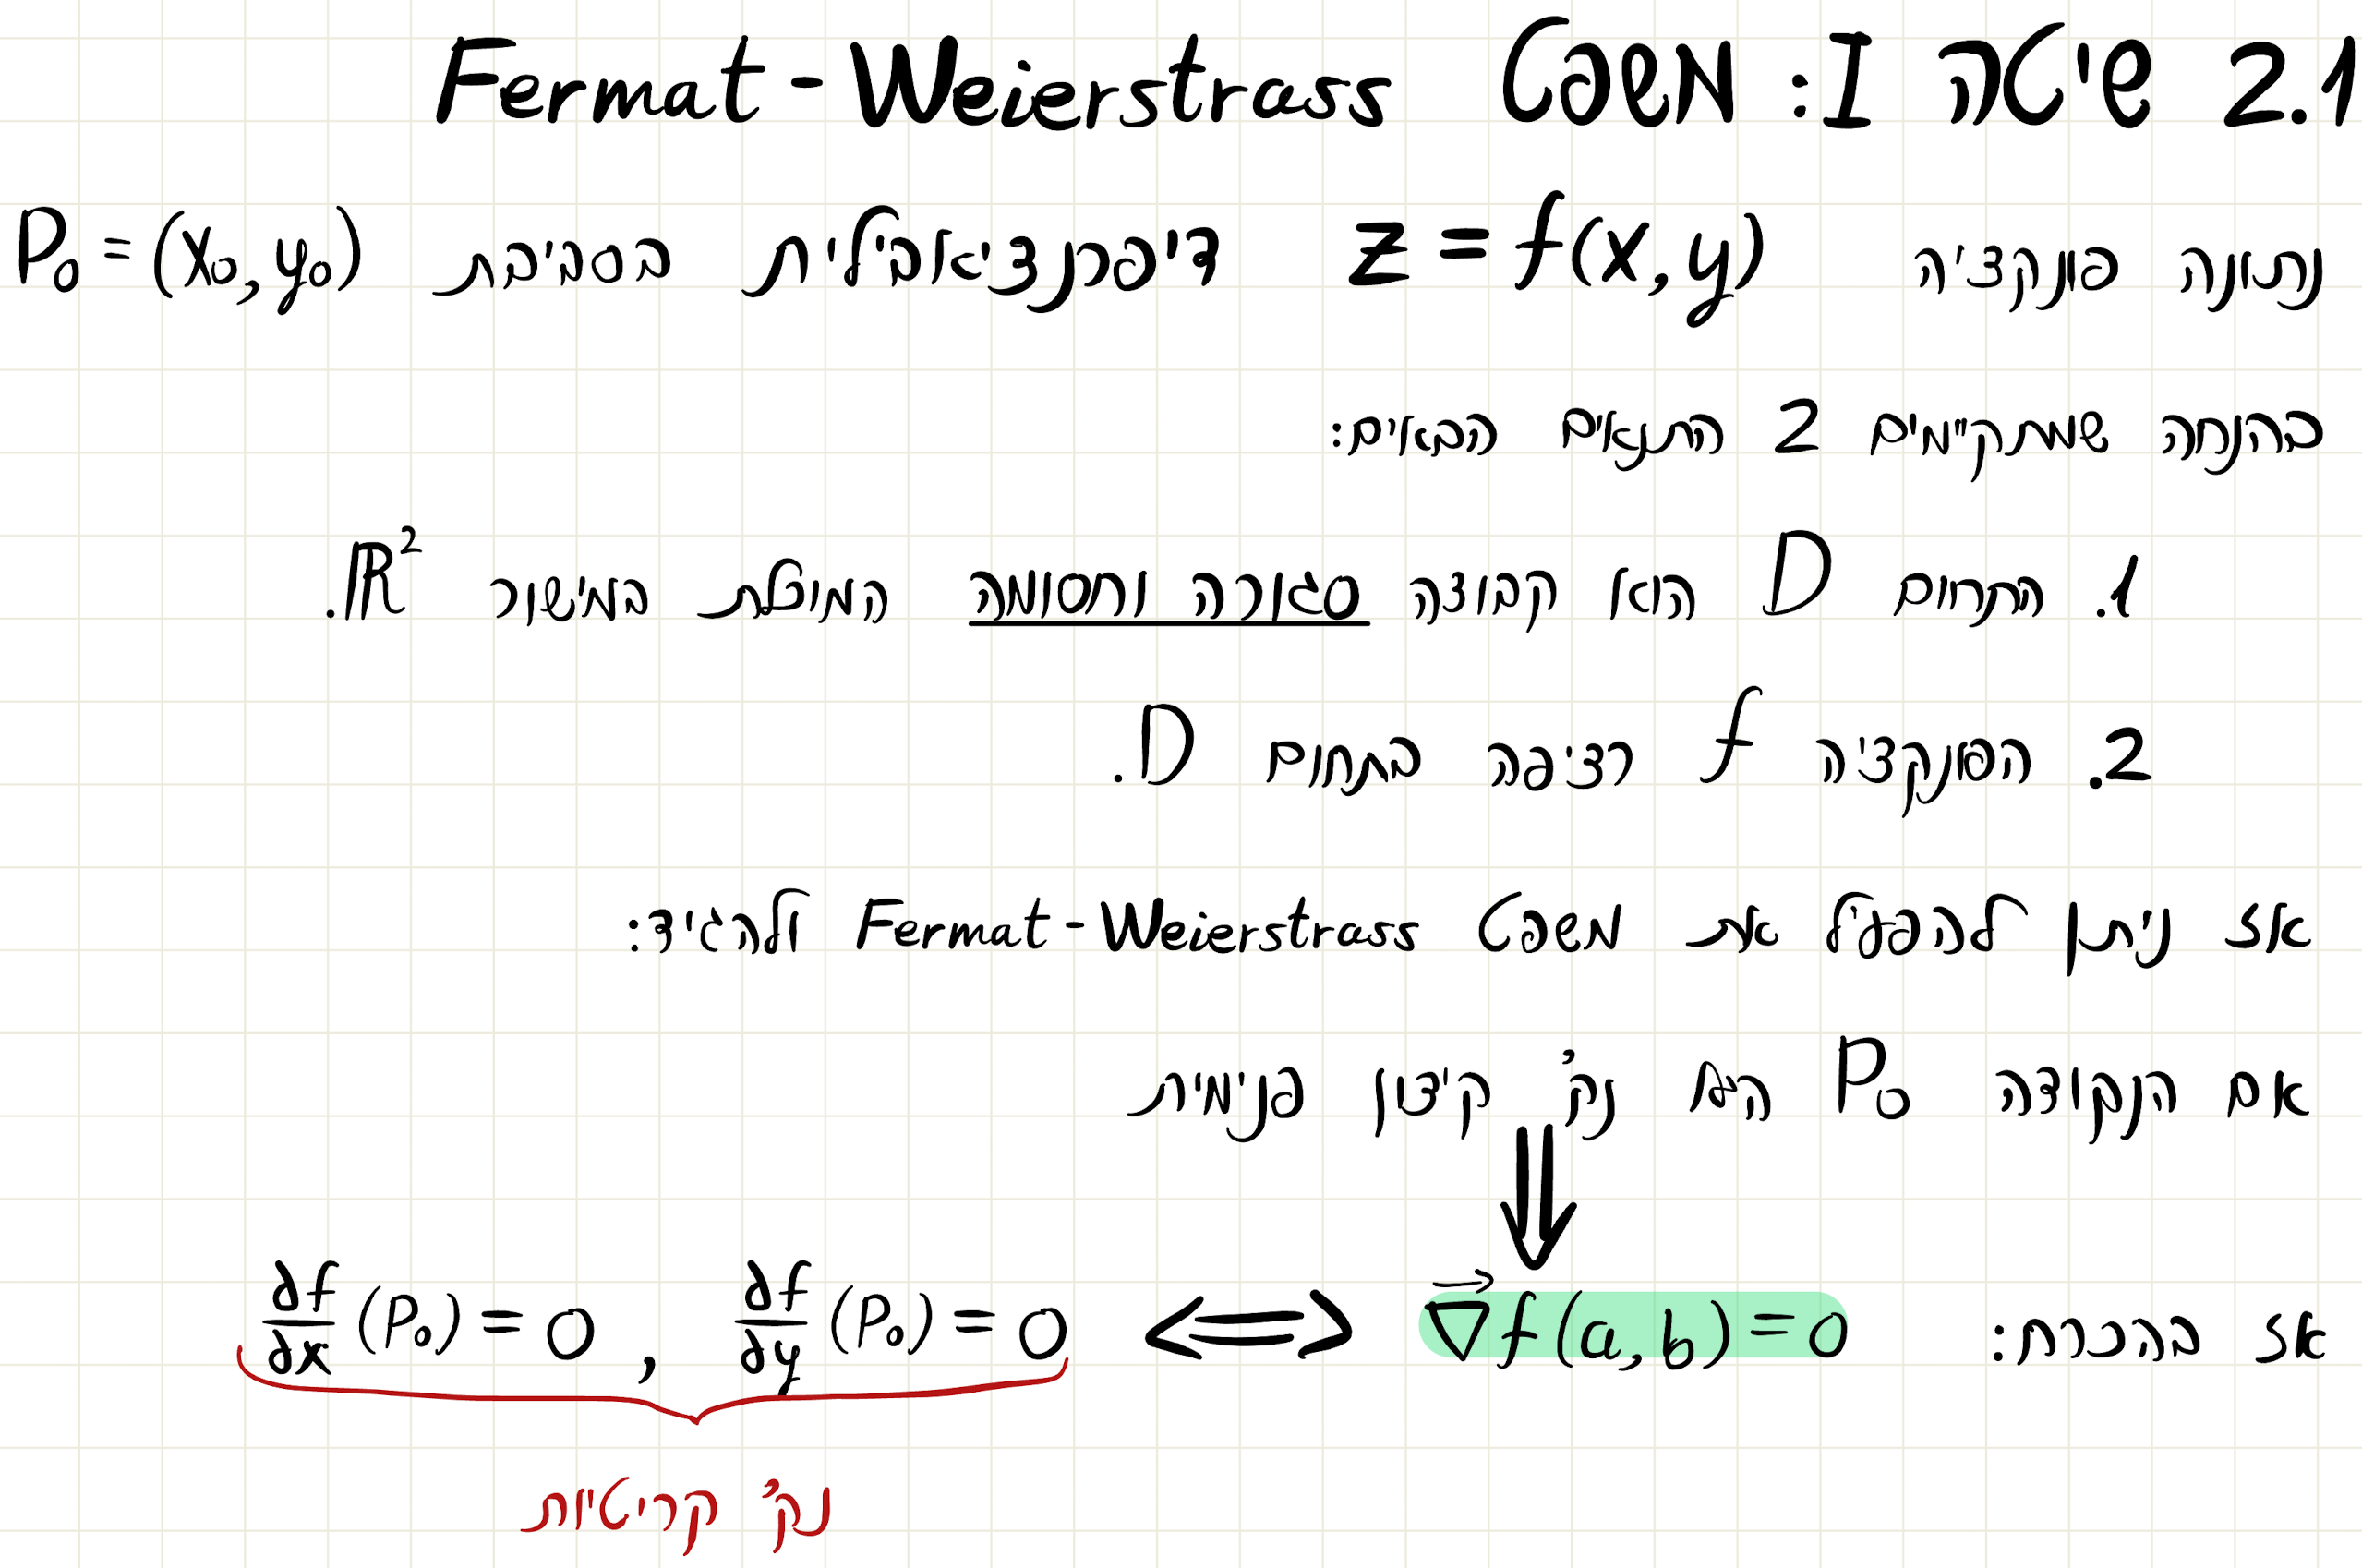 2.1 שיטה I: משפט Fermat-Weierstrass
נתונה פונקציה z = f(x,y) דיפרנציאבילית בסביבת P₀ = (x₀, y₀)
בהנחה שמתקיימים 2 התנאים הבאים:
1. התחום D הוא קבוצה סגורה וחסומה המוכלת במישור ℝ².
2. הפונקציה f רציפה בתחום D.
אז ניתן להפעיל את משפט Fermat-Weierstrass ולהגיד:
אם הנקודה P₀ היא נק' קיצון פנימית
⇓
אז בהכרח: ∇⃗f(a,b) = 0 ⟺ ∂f/∂x (P₀) = 0 , ∂f/∂y (P₀) = 0
נק' קריטיות